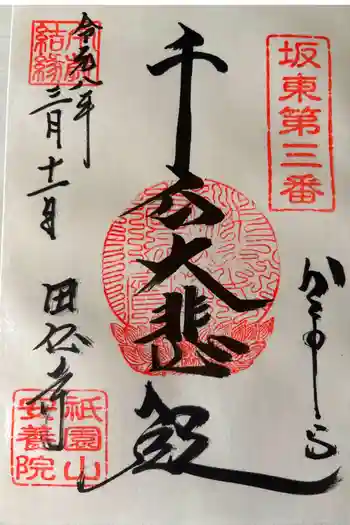 坂東第三番
かまくら
千手大悲殿
結縁
令和八年
三月十一日
田代寺
祇園山
安養院